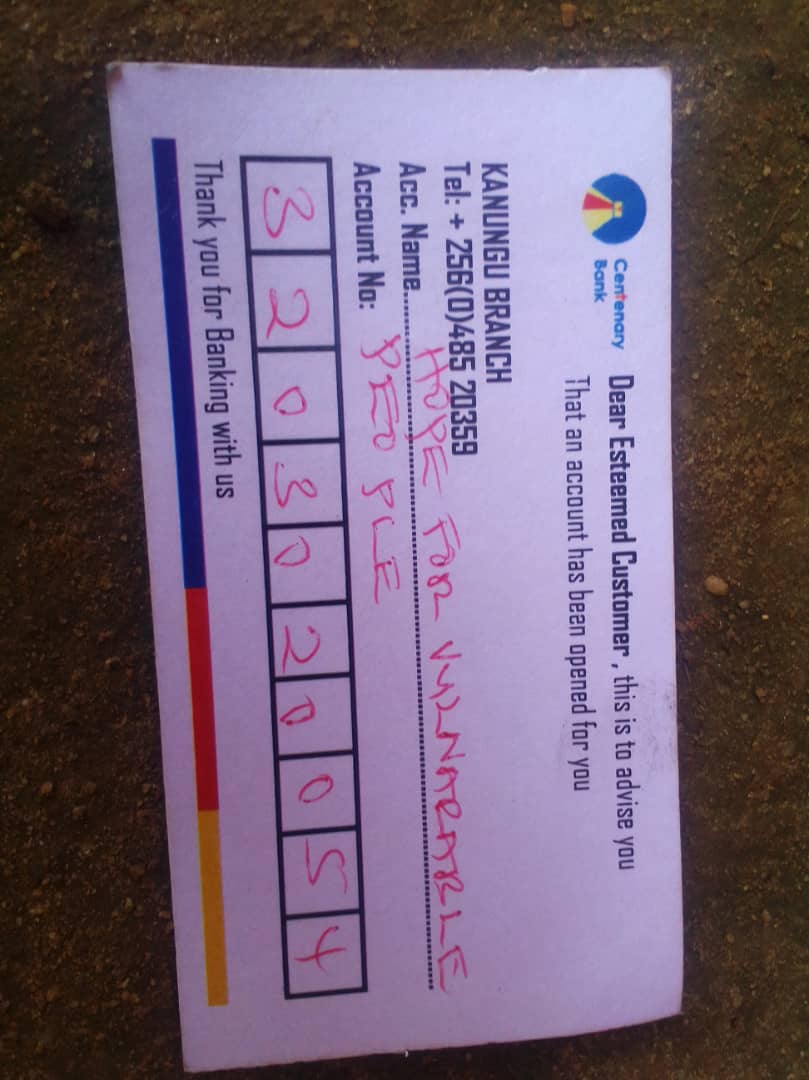 Centenary
Bank
Dear Esteemed Customer, this is to advise you
That an account has been opened for you
KANUNGU BRANCH
Tel: + 256(0)485 20359
Acc. Name.......HOPE FOR VULNARABLE
Account No: PEOPLE
3 2 0 3 0 2 0 0 5 4
Thank you for Banking with us